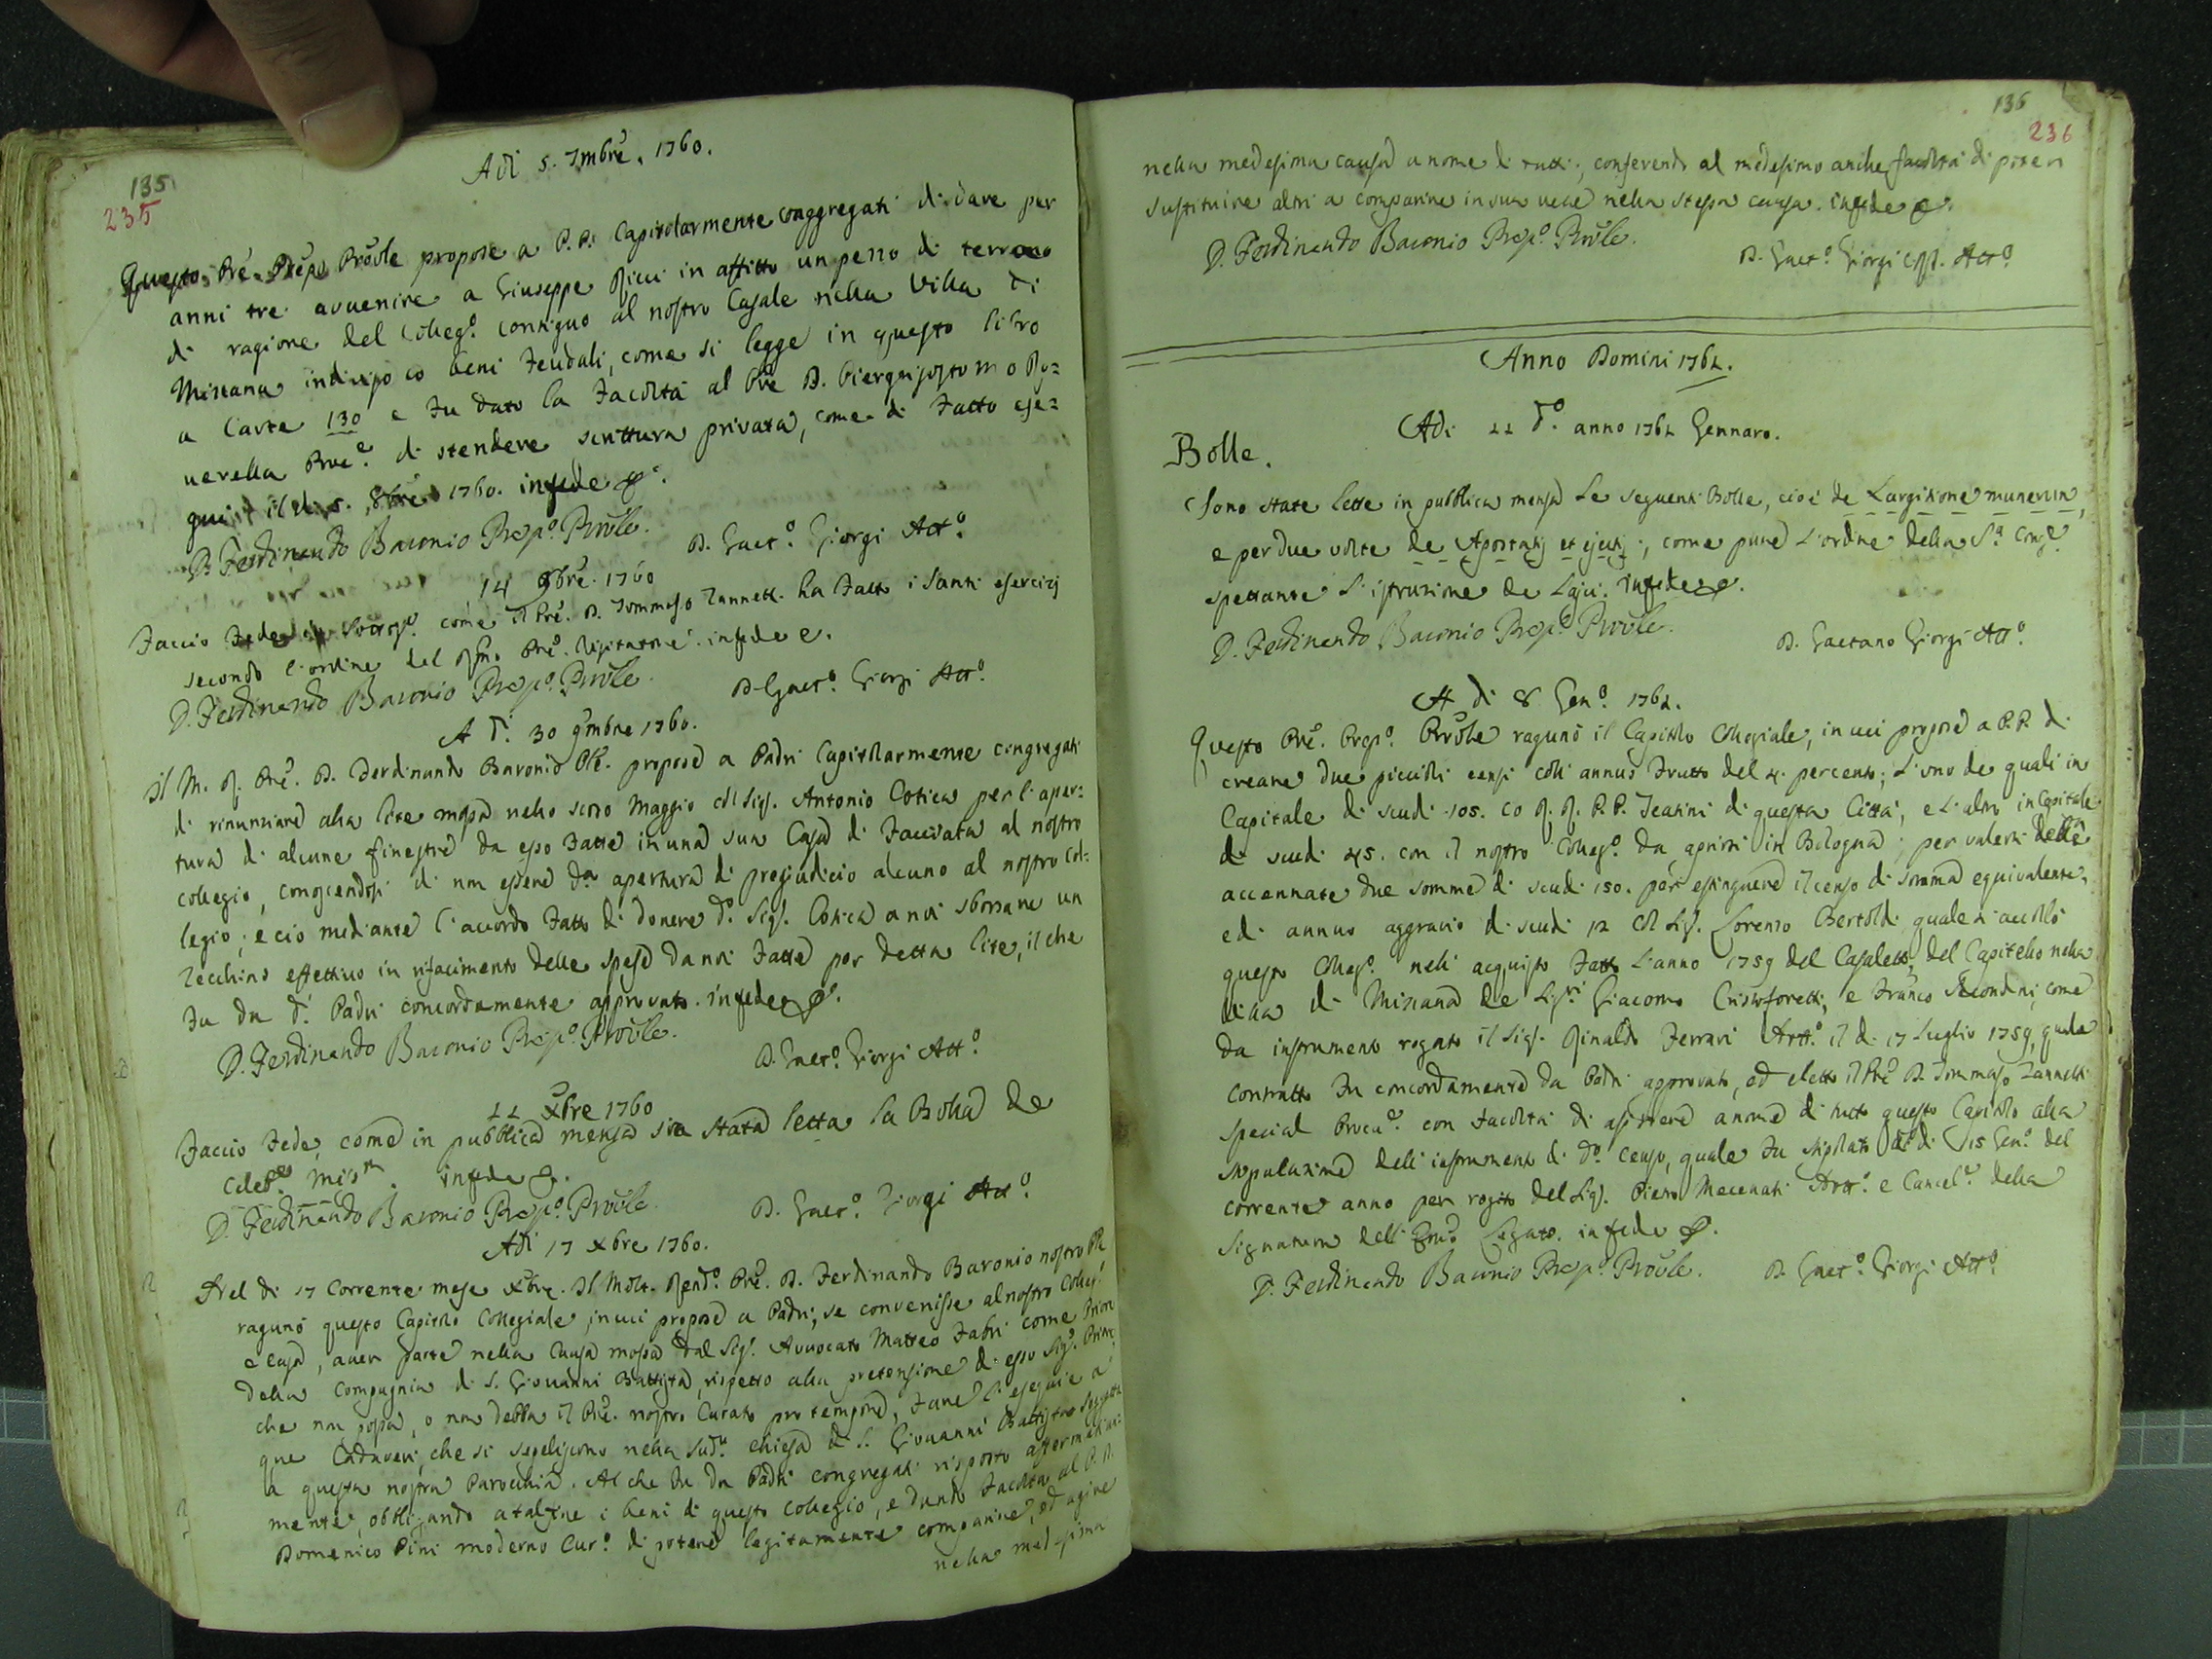 135
235
Adi 5. 7mbre. 1760.
Questo Pre. Prepo Provle propose a P.P. Capitolarmente congregati di dare per
anni tre avvenire a Giuseppe Ricci in affitto un pezzo di terreno
di ragione del Collego. contiguo al nostro Casale nella Villa di
Miseana indiviso co beni feudali, come si legge in questo libro
a Carte 130 e fu dato la facoltà al Pre D. Piergrisostomo Ro=
verella Proce. di stendere scrittura privata, come di fatto ese=
guì il di 5. 8bre 1760. infede
D. Ferdinando Baronio Prepo. Provle. D. Gaeto. Giorgi Atto.
14 9bre. 1760
Faccio fede io sottoso. come il Pre. D. Tommaso Zannetti ha fatto i Santi esercizj
secondo l'ordine del Rmo. Pre. Visitatore. infede
D. Ferdinando Baronio Prepo. Provle. D. Gaeto. Giorgi Atto.
A di. 30 9mbre 1760.
Il M. R. Pre. D. Ferdinando Baronio Ple. propose a Padri Capitolarmente congregati
di rinunziare alla lite mossa nello scorso Maggio col Sigr. Antonio Cotica per l'aper=
tura di alcune finestre da esso fatte in una sua Casa di facciata al nostro
collegio, conoscendosi di non essere da. apertura di pregiudicio alcuno al nostro Col=
legio; e cio mediante l'accordo fatto di dovere do. Sigr. Cotica a noi sborsare un
Zecchino effettivo in rifacimento delle spese da noi fatte per detta lite, il che
fu da di. Padri concordamente approvato. infede
D. Ferdinando Baronio Prepo. Provle. D. Gaeto. Giorgi Atto.
11 Xbre 1760
Faccio fede, come in pubblica mensa sia stata letta la Bolla de
Celebe. Mism. infede
D. Ferdinando Baronio Prepo. Provle. D. Gaeto. Giorgi Atto.
Adi 17 Xbre 1760.
Nel di 17 corrente mese Xbre. Il Molt. Rendo. Pre. D. Ferdinando Baronio nostro Ple
ragunò questo Capitolo Collegiale, in cui propose a Padri, se convenisse al nostro Collego.
e casa, aver parte nella Causa mossa dal Sigr. Avvocato Matteo Fabri come Prior
della Compagnia di S. Giovanni Battista, rispetto alla pretensione di esso Sigr. Priore,
che non possa, o non debba il Pre. nostro Curato pro tempore, fare l'esequie a
que Cadaveri, che si sepeliscono nella suda. chiesa di S. Giovanni Battista soggetta
a questa nostra Parocchia. Al che fu da Padri congregati risposto affermativa=
mente, obbligando a tal fine i beni di questo Collegio, e dando facoltà al P. D.
Domenico Pini moderno Curo. di potere legitamente comparire, ed agire
nella medesima
136
236
nella medesima causa a nome di tutti, conferendo al medesimo anche facoltà di poter
sustituire altri a comparire in sua vece nella stessa causa. infede
D. Ferdinando Baronio Prepo. Provle. D. Gaeto. Giorgi Atto.
Anno Domini 1761.
Adi 11 do. anno 1761 Gennaro.
Bolle.
Sono state lette in pubblica mensa Le seguenti Bolle, cioè de Largitione munerum,
e per due volte de Apostatis et ejectis, come pure L'ordine della Sa. Conge
spettante L'istruzione de Laici. infede
D. Ferdinando Baronio Prepo. Provle. D. Gaetano Giorgi Atto.
A di 8 Geno. 1761.
Questo Pre. Prepo. Provle ragunò il Capitolo Collegiale, in cui propose a P.P. di
creare due piccioli censi coll'annuo frutto del 4. percento; L'uno de quali in
Capitale di scudi 105. co R. R. P.P. Teatini di questa Città, e L'altro in Capitale
di scudi 45. con il nostro Collego. da aprirsi in Bologna; per valersi delle
accennate due somme di scudi 150. per estinguere il censo di somma equivalente,
ed annuo aggravio di scudi 12 col Sigr. Lorenzo Bertoldi quale si accollò
questo Collego. nell'acquisto fatto L'anno 1759 del Casaletto, del Capitello nella
Villa di Misana de Sigri. Giacomo Cristoforetti, e Franco Secondini come
da instrumento rogato il Sigr. Rinaldo Ferrari Atto. il di 17 Luglio 1759, quale
contratto fu concordamente da Padri approvato, ed eletto il Pre D. Tommaso Zannetti
special Procue. con facoltà di assistere a nome di tutto questo Capitolo alla
stipulazione dell'instrumento di do. Censo, quale fu stipolato il di 15 Geno. del
corrente anno per rogito del Sigr. Pietro Mecenati Atto. e Cancele. della
Signatura dell'Emo Legato. infede
D. Ferdinando Baronio Prepo. Provle. D. Gaeto. Giorgi Atto.